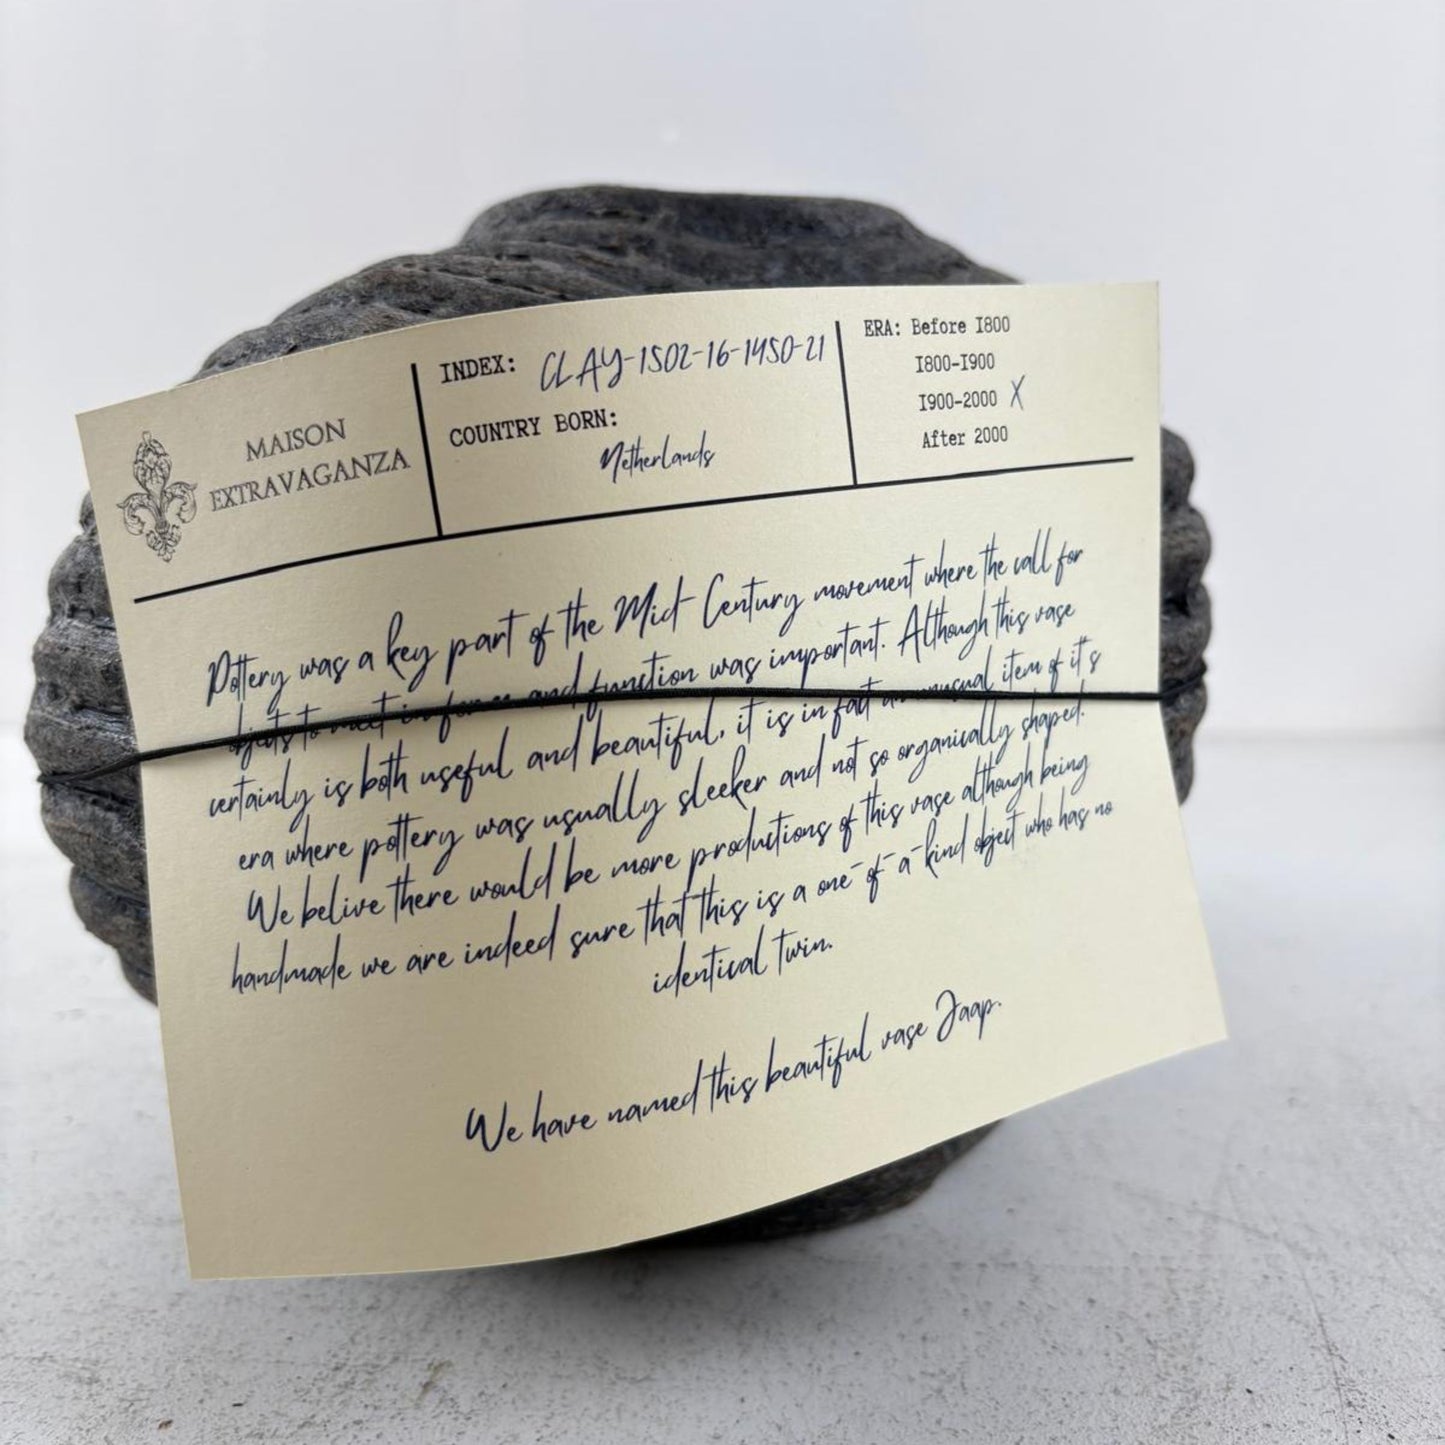 MAISON
EXTRAVAGANZA
INDEX: CLAY-1502-16-1450-21
COUNTRY BORN:
Netherlands
ERA: Before 1800
1800-1900
1900-2000 X
After 2000
Pottery was a key part of the Mid-Century movement where the call for
objects to meet in form and function was important. Although this vase
certainly is both useful and beautiful, it is in fact an unusual item of it's
era where pottery was usually sleeker and not so organically shaped.
We belive there would be more productions of this vase although being
handmade we are indeed sure that this is a one-of-a-kind object who has no
identical twin.
We have named this beautiful vase Jaap.